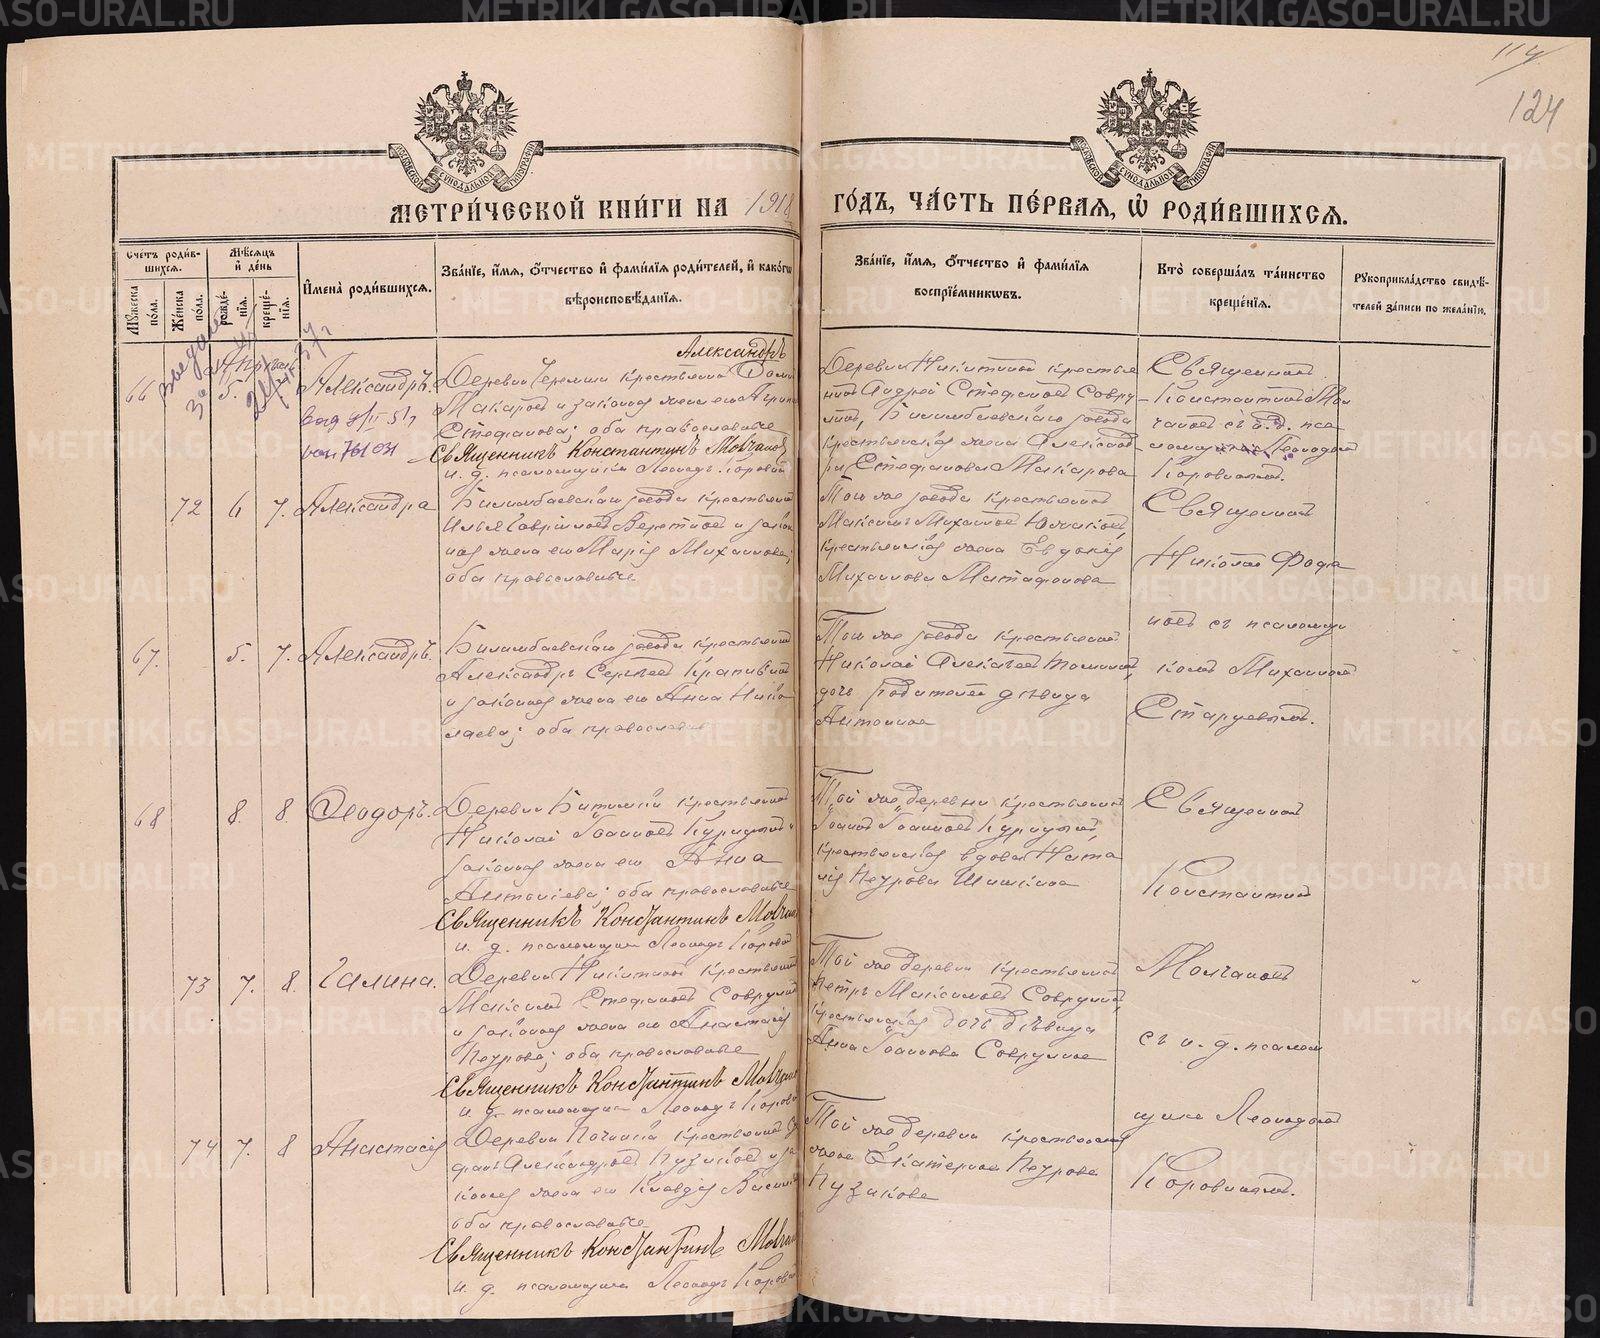 114
124
МОСКОВСКОЙ СѴНОДАЛЬНОЙ ТИПОГРАФІИ
МОСКОВСКОЙ СѴНОДАЛЬНОЙ ТИПОГРАФІИ
МЕТРИ́ЧЕСКОЙ КНИ́ГИ НА 1918
ГО́ДЪ, ЧА́СТЬ ПЕ́РВАЯ, Ѽ РОДИ́ВШИХСЯ.
Сче́тъ роди́в-
шихся.
Му́жеска по́ла.
Же́нска по́ла.
Мѣ́сяцъ и҆ де́нь
рожде́нія.
креще́нія.
И҆мена̀ роди́вшихся.
Зва́ніе, и҆́мя, ѻ҆́тчество и҆ фами́лія роди́телей, и҆ како́гѡ
вѣроисповѣ́данія.
Зва́ніе, и҆́мя, ѻ҆́тчество и҆ фами́лія
воспріе́мникѡвъ.
Кто̀ соверша́лъ та́инство
креще́нія.
Рꙋкоприкла́дство свидѣ́-
телей за́писи по жела́нію.
66
5.
Александръ.
Александръ
Деревни Черемши крестьянинъ
Макаровъ и законная жена его
Стефанова; оба православные
Священникъ Константинъ Молчановъ
и. д. псаломщика Леонидъ Коровинъ
Деревни Никитиной крестья-
нинъ Андрей Стефановъ Совру-
линъ, Билимбаевскаго завода
крестьянская жена Александ-
ра Стефанова Макарова
Священникъ
Константинъ Мол
чановъ съ и. д. пса-
ломщика Леонидомъ
Коровинымъ.
72 6 7. Александра
Билимбаевскаго завода крестьянинъ
Илья Гавріиловъ и закон
ная жена его Марія Михаилова;
оба православные
Того же завода крестьянинъ
Максимъ Михаиловъ
крестьянская жена Евдокія
Михаилова
Священникъ
Николай
новъ съ псаломщи
комъ Михаиломъ
Старцевымъ.
67. 5. 7. Александръ.
Билимбаевскаго завода крестьянинъ
Александръ Сергѣевъ Крапивинъ
и законная жена его Анна Нико
лаева; оба православные
Того же завода крестьянинъ
Николай
дочь родителей дѣвица
Антонина
68 8. 8. Ѳеодоръ.
Деревни Битимки крестьянинъ
Николай Іоанновъ Курицынъ и
законная жена его Анна
Антоніева; оба православные
Священникъ Константинъ Молчанов
и. д. псаломщика Леонидъ Коровинъ
Той же деревни крестьянинъ
Іоаннъ Іоанновъ Курицынъ,
крестьянская вдова Ната
лія Петрова Шишкина
Священникъ
Константинъ
Молчановъ
съ и. д. псалом
щика Леонидомъ
Коровинымъ.
73 7. 8. Галина.
Деревни Никитиной крестьянинъ
Максимъ Стефановъ Соврулинъ
и законная жена его Анастасія
Петрова; оба православные
Священникъ Константинъ Молчанов
и. д. псаломщика Леонидъ Корови
Той же деревни крестьянинъ
Петръ Максимовъ Соврулинъ,
крестьянская дочь дѣвица
Анна Іоаннова Соврулина
74 7. 8 Анастасія
Деревни Починка крестьянинъ
Александровъ Пузиковъ и за
конная жена его Клавдія
оба православные
Священникъ Константинъ Молчан
и. д. псаломщика Леонидъ Корови
Той же деревни крестьянская
жена Екатерина Петрова
Пузикова
METRIKI.GASO-URAL.RU